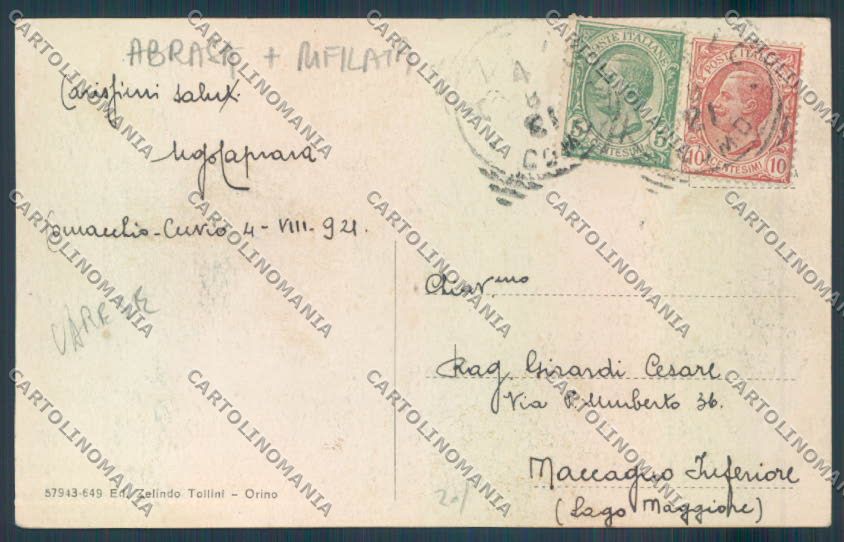 ABRASE + RIFILATA
Carissimi saluti
Comacchio-Cuvio 4-VIII-921.
VARESE
Chiar.mo
Rag. Girardi Cesare
Via P. Umberto 36.
Maccagno Inferiore
(Lago Maggiore)
57943-649 Ed. Zelindo Tollini - Orino
POSTE ITALIANE
5
CENTESIMI
POSTE ITALIANE
10 10
CENTESIMI
CARTOLINOMANIA